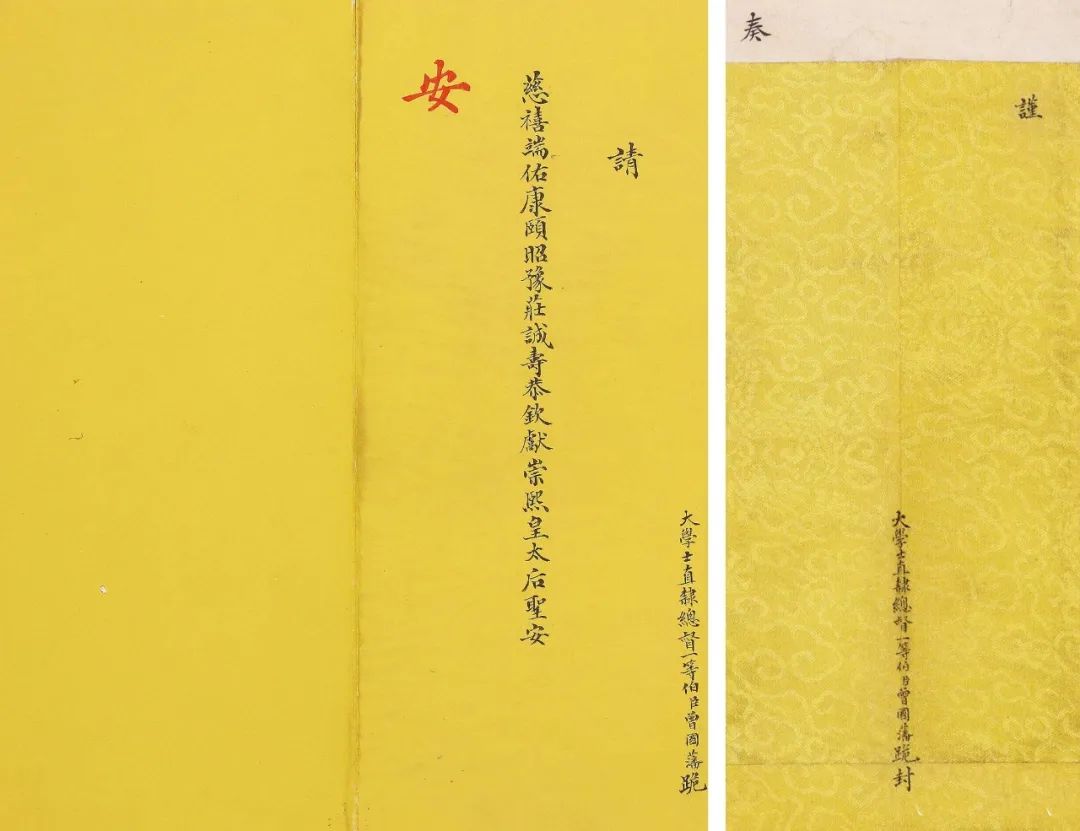 大學士直隸總督一等伯臣曾國藩跪
請
慈禧端佑康頤昭豫莊誠壽恭欽獻崇熙皇太后聖安
安
謹
大學士直隸總督一等伯臣曾國藩跪封
奏